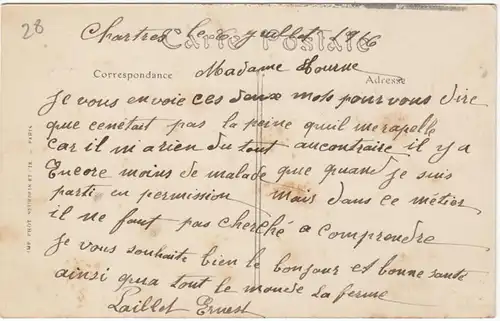 28
Chartres le 6 Juillet 1916
Carte Postale
Madame
Correspondance
Adresse
Je vous envoie ces deux mots pour vous dire
que cenétait pas la peine quil me rapelle
car il m'a rien du tout aucontraire il y a
Encore moins de malade que quand je suis
parti en permission mais dans ce métier
il ne faut pas cherché a comprendre
Je vous souhaite bien le bonjour et bonne santé
ainsi qua tout le monde La ferme
Laillet Ernest
IMP. PHOT. NEURDEIN ET CIE. - PARIS